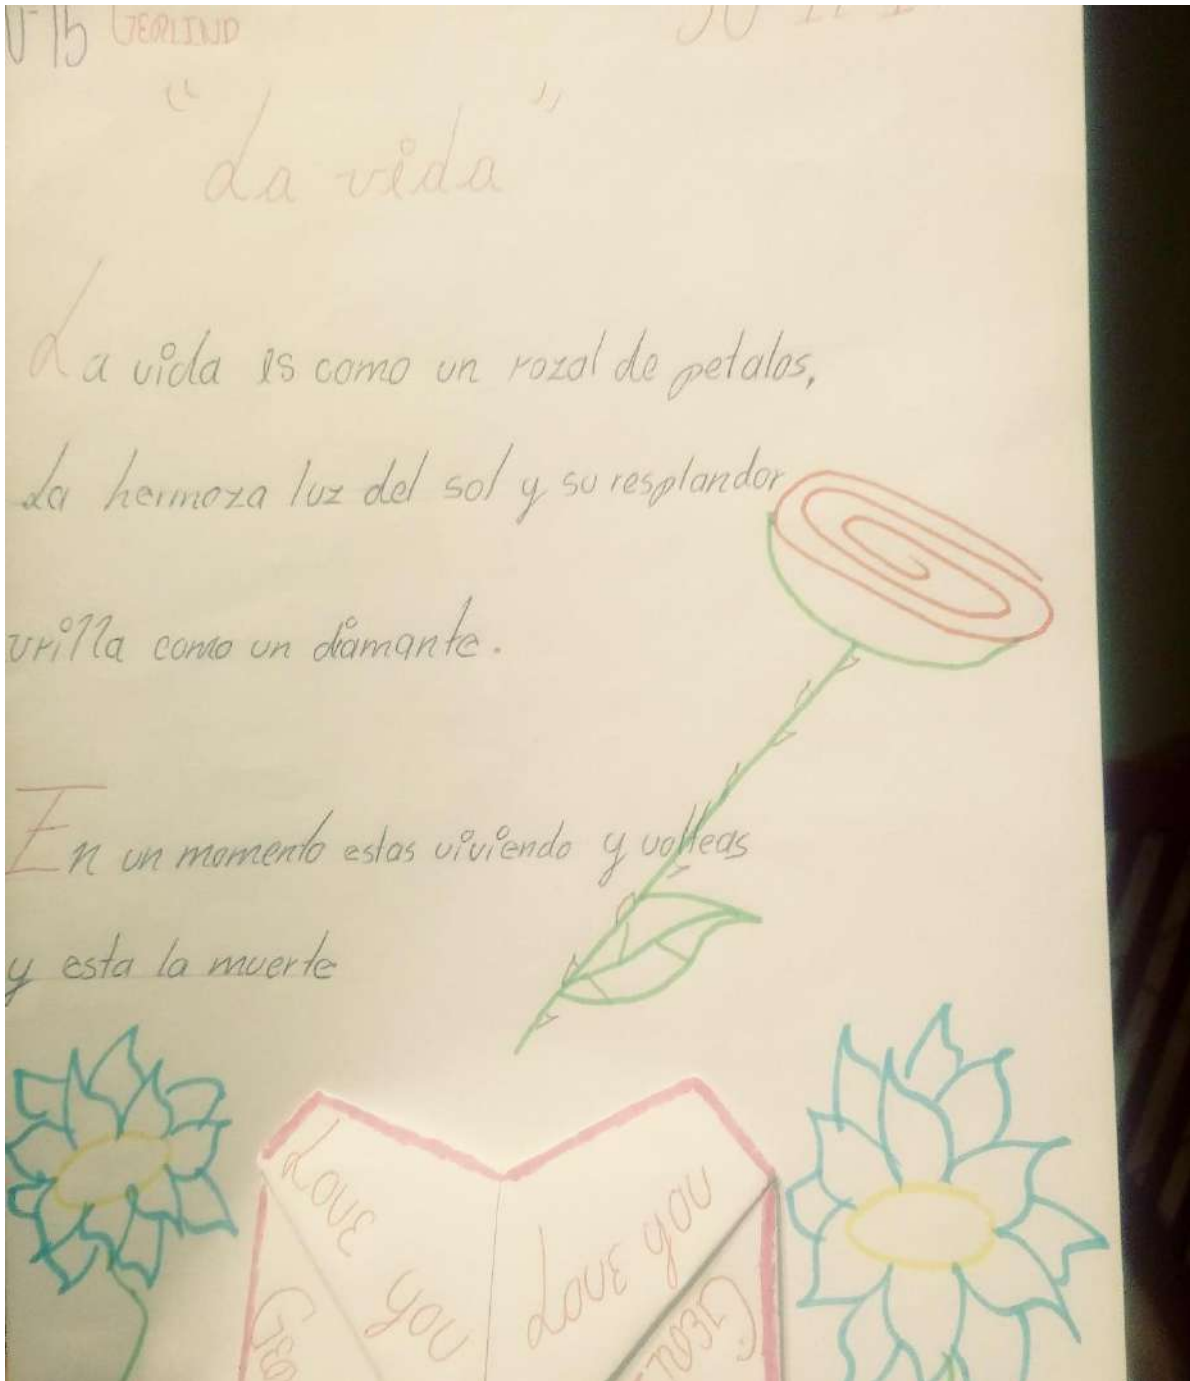 GERLIND
"La vida"
La vida es como un rozal de petalos,
La hermoza luz del sol y su resplandor
vrilla como un diamante.
En un momento estas viviendo y volteas
y esta la muerte
Love you
Love you